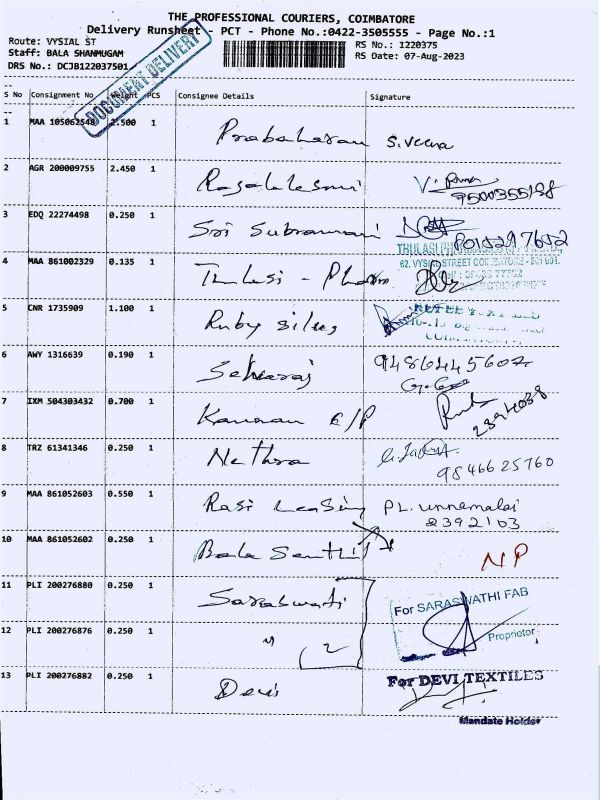 THE PROFESSIONAL COURIERS, COIMBATORE
Delivery Runsheet - PCT - Phone No.:0422-3505555 - Page No.:1
Route: VYSIAL ST
Staff: BALA SHANMUGAM
DRS No.: DCJB122037501
RS No.: 1220375
RS Date: 07-Aug-2023
DOCUMENT DELIVERY
S No Consignment No Weight PCS Consignee Details Signature
1 MAA 105062548 2.500 1 Prabaharan S.Veena
2 AGR 200009755 2.450 1 Rajalaksmi
3 EDQ 22274498 0.250 1 Sri Subramani
62, VYSIAL STREET
4 MAA 861002329 0.135 1 Thulasi - Pharma
5 CNR 1735909 1.100 1 Ruby silks
6 AWY 1316639 0.190 1 Selvaraj 9486445607
7 IXM 504303432 0.700 1 Kannan E/P
8 TRZ 61341346 0.250 1 Nethra
9846625760
9 MAA 861052603 0.550 1 Rasi Leasing PL. unnamalai
2392103
10 MAA 861052602 0.250 1 Bala Senthil NP
11 PLI 200276880 0.250 1 Saraswati For SARASWATHI FAB
12 PLI 200276876 0.250 1 " 2 Proprietor
13 PLI 200276882 0.250 1 Devi For DEVI TEXTILES
Mandate Holder